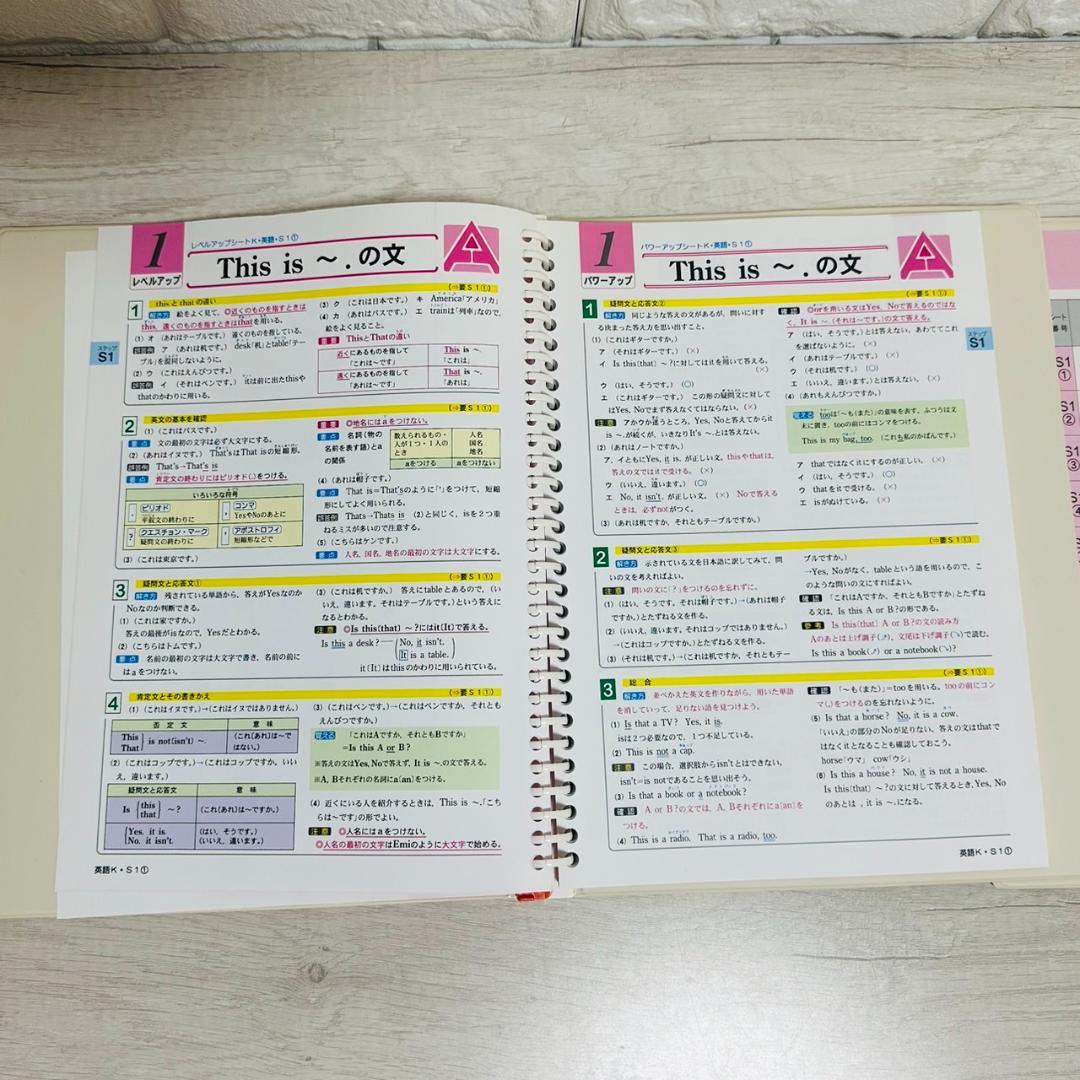 1
レベルアップ
レベルアップシートK・英語・S1①
This is ～ . の文
ステップ
S1
1 thisとthatの違い (⇒要S1①)
解き方 絵をよく見て、◎近くのものを指すときは
this、遠くのものを指すときはthatを用いる。
(1) オ (あれはテーブルです。) 遠くのものを指している。
誤答例 ア (あれは机です。) desk「机」とtable「テー
ブル」を混同しないように。
(2) ウ (これはえんぴつです。)
誤答例 イ (それはペンです。) itは前に出たthisや
thatのかわりに用いる。
(3) ク (これは日本です。) キ America「アメリカ」
(4) カ (あれはバスです。) エ trainは「列車」なので、
絵をよく見ること。
重要 ThisとThatの違い
近くにあるものを指して
「これは～です」
This is ～.
「これは」
遠くにあるものを指して
「あれは～です」
That is ～.
「あれは」
2 英文の基本を確認 (⇒要S1①)
(1) (これはバスです。)
要点 文の最初の文字は必ず大文字にする。
(2) (あれはイヌです。) That'sはThat isの短縮形。
誤答例 That's→That's is
要点 肯定文の終わりにはピリオド(.)をつける。
いろいろな符号
. ピリオド
平叙文の終わりに
, コンマ
YesやNoのあとに
? クエスチョン・マーク
疑問文の終わりに
' アポストロフィ
短縮形などで
(3) (これは東京です。)
重要 ◎地名にはaをつけない。
要点 名詞(物の
名前を表す語)とa
の関係
数えられるもの・
人が1つ・1人の
とき
人名
国名
地名
aをつける
aをつけない
(4) (あれは帽子です。)
要点 That is=That'sのように「'」をつけて、短縮
形にしてよく用いられる。
誤答例 Thats→Thats is (2)と同じく、isを2つ重
ねるミスが多いので注意する。
(5) (こちらはケンです。)
要点 人名、国名、地名の最初の文字は大文字にする。
3 疑問文と応答文① (⇒要S1①)
解き方 残されている単語から、答えがYesなのか
Noなのか判断できる。
(1) (これは家ですか。)
答えの最後がisなので、Yesだとわかる。
(2) (こちらはトムです。)
要点 名前の最初の文字は大文字で書き、名前の前に
はaをつけない。
(3) (これは机ですか。) 答えにtableとあるので、(い
いえ、違います。それはテーブルです。)という答えに
なるとわかる。
注意 ◎Is this(that) ～?にはit(It)で答える。
Is this a desk?—(No, it isn't.
It is a table.)
it(It)はthisのかわりに用いられている。
4 肯定文とその書きかえ (⇒要S1①)
(1) (これはイヌです。)→(これはイヌではありません。)
否定文 意味
This
That } is not(isn't) ～.
(これ(あれ)は～で
はない。)
(2) (これはコップです。)→(これはコップですか。いい
え、違います。)
疑問文と応答文 意味
Is {this
that} ～?
(これ(あれ)は～ですか。)
{Yes. it is.
No. it isn't.
(はい、そうです。)
(いいえ、違います。)
(3) (これはペンです。)→(これはペンですか、それとも
えんぴつですか。)
覚える 「これはAですか、それともBですか」
=Is this A or B?
※答えの文はYes、Noで答えず、It is ～.の文で答える。
※A、Bそれぞれの名詞にa(an)をつける。
(4) 近くにいる人を紹介するときは、This is ～.「こち
らは～です」の形でよい。
注意 ◎人名にはaをつけない。
◎人名の最初の文字はEmiのように大文字で始める。
英語K・S1①
1
パワーアップ
パワーアップシートK・英語・S1①
This is ～ . の文
ステップ
S1
1 疑問文と応答文② (⇒要S1①)
解き方 同じような答えの文があるが、問いに対す
る決まった答え方を思い出すこと。
(1) (これはギターですか。)
ア (それはギターです。) (×)
イ Is this(that) ～?に対してはitを用いて答える。
(×)
ウ (はい、そうです。) (○)
エ (これはギターです。) この形の疑問文に対して
はYes、Noでまず答えなくてはならない。(×)
注意 アかウか迷うところ。Yes、Noと答えてからit
is ～.が続くが、いきなりIt's ～.とは答えない。
(2) (あれはノートですか。)
ア イともにYes, it is. が正しい文。thisやthatは、
答えの文ではitで受ける。(×)
ウ (いいえ、違います。) (○)
エ No, it isn't. が正しい文。(×) Noで答える
ときは、必ずnotがつく。
(3) (あれは机ですか、それともテーブルですか。)
確認 ◎orを用いる文はYes、Noで答えるのではな
く、It is ～.(それは～です。)の文で答える。
ア (はい、そうです。)とは答えない。あわててこれ
を選ばないように。(×)
イ (あれはテーブルです。) (×)
ウ (それは机です。) (○)
エ (いいえ、違います。)とは答えない。(×)
(4) (あれもえんぴつですか。)
覚える tooは「～も(また)」の意味を表す。ふつうは文
末に置き、tooの前にはコンマをつける。
This is my bag, too. (これも私のかばんです。)
ア thatではなくitにするのが正しい。(×)
イ (はい、そうです。) (○)
ウ thatをitで受ける。(×)
エ isがぬけている。(×)
2 疑問文と応答文③ (⇒要S1①)
解き方 示されている文を日本語に訳してみて、問
いの文を考えればよい。
注意 問いの文に「?」をつけるのを忘れずに。
(1) (はい、そうです。それは帽子です。)→(あれは帽子
ですか。)とたずねる文を作る。
(2) (いいえ、違います。それはコップではありません。)
→(これはコップですか。)とたずねる文を作る。
(3) (それは机です。)→(これは机ですか、それともテー
ブルですか。)
→Yes、Noがなく、tableという語を用いるので、こ
のような問いの文にすればよい。
確認 「これはAですか、それともBですか」とたずね
る文は、Is this A or B?の形である。
参考 Is this(that) A or B?の文の読み方
Aのあとは上げ調子(⤴)、文尾は下げ調子(⤵)で読む。
Is this a book(⤴) or a notebook(⤵)?
3 総合 (⇒要S1①)
解き方 並べかえた英文を作りながら、用いた単語
を消していって、足りない語を見つけよう。
(1) Is that a TV? Yes, it is.
isは2つ必要なので、1つ不足している。
(2) This is not a cap.
注意 この場合、選択肢からisn'tとはできない。
isn't=is notであることを思い出そう。
(3) Is that a book or a notebook?
確認 A or B?の文では、A、Bそれぞれにa(an)を
つける。
(4) This is a radio. That is a radio, too.
確認 「～も(また)」=tooを用いる。tooの前にコン
マ(,)をつけるのを忘れないように。
(5) Is that a horse? No, it is a cow.
「いいえ」の部分のNoが足りない。答えの文はthatで
はなくitとなることも確認しておこう。
horse「ウマ」 cow「ウシ」
(6) Is this a house? No, it is not a house.
Is this(that) ～?の文に対して答えるとき、Yes、No
のあとは、it is ～.になる。
英語K・S1①
シート
番号
S1
①
S1
②
S1
③
S1
④